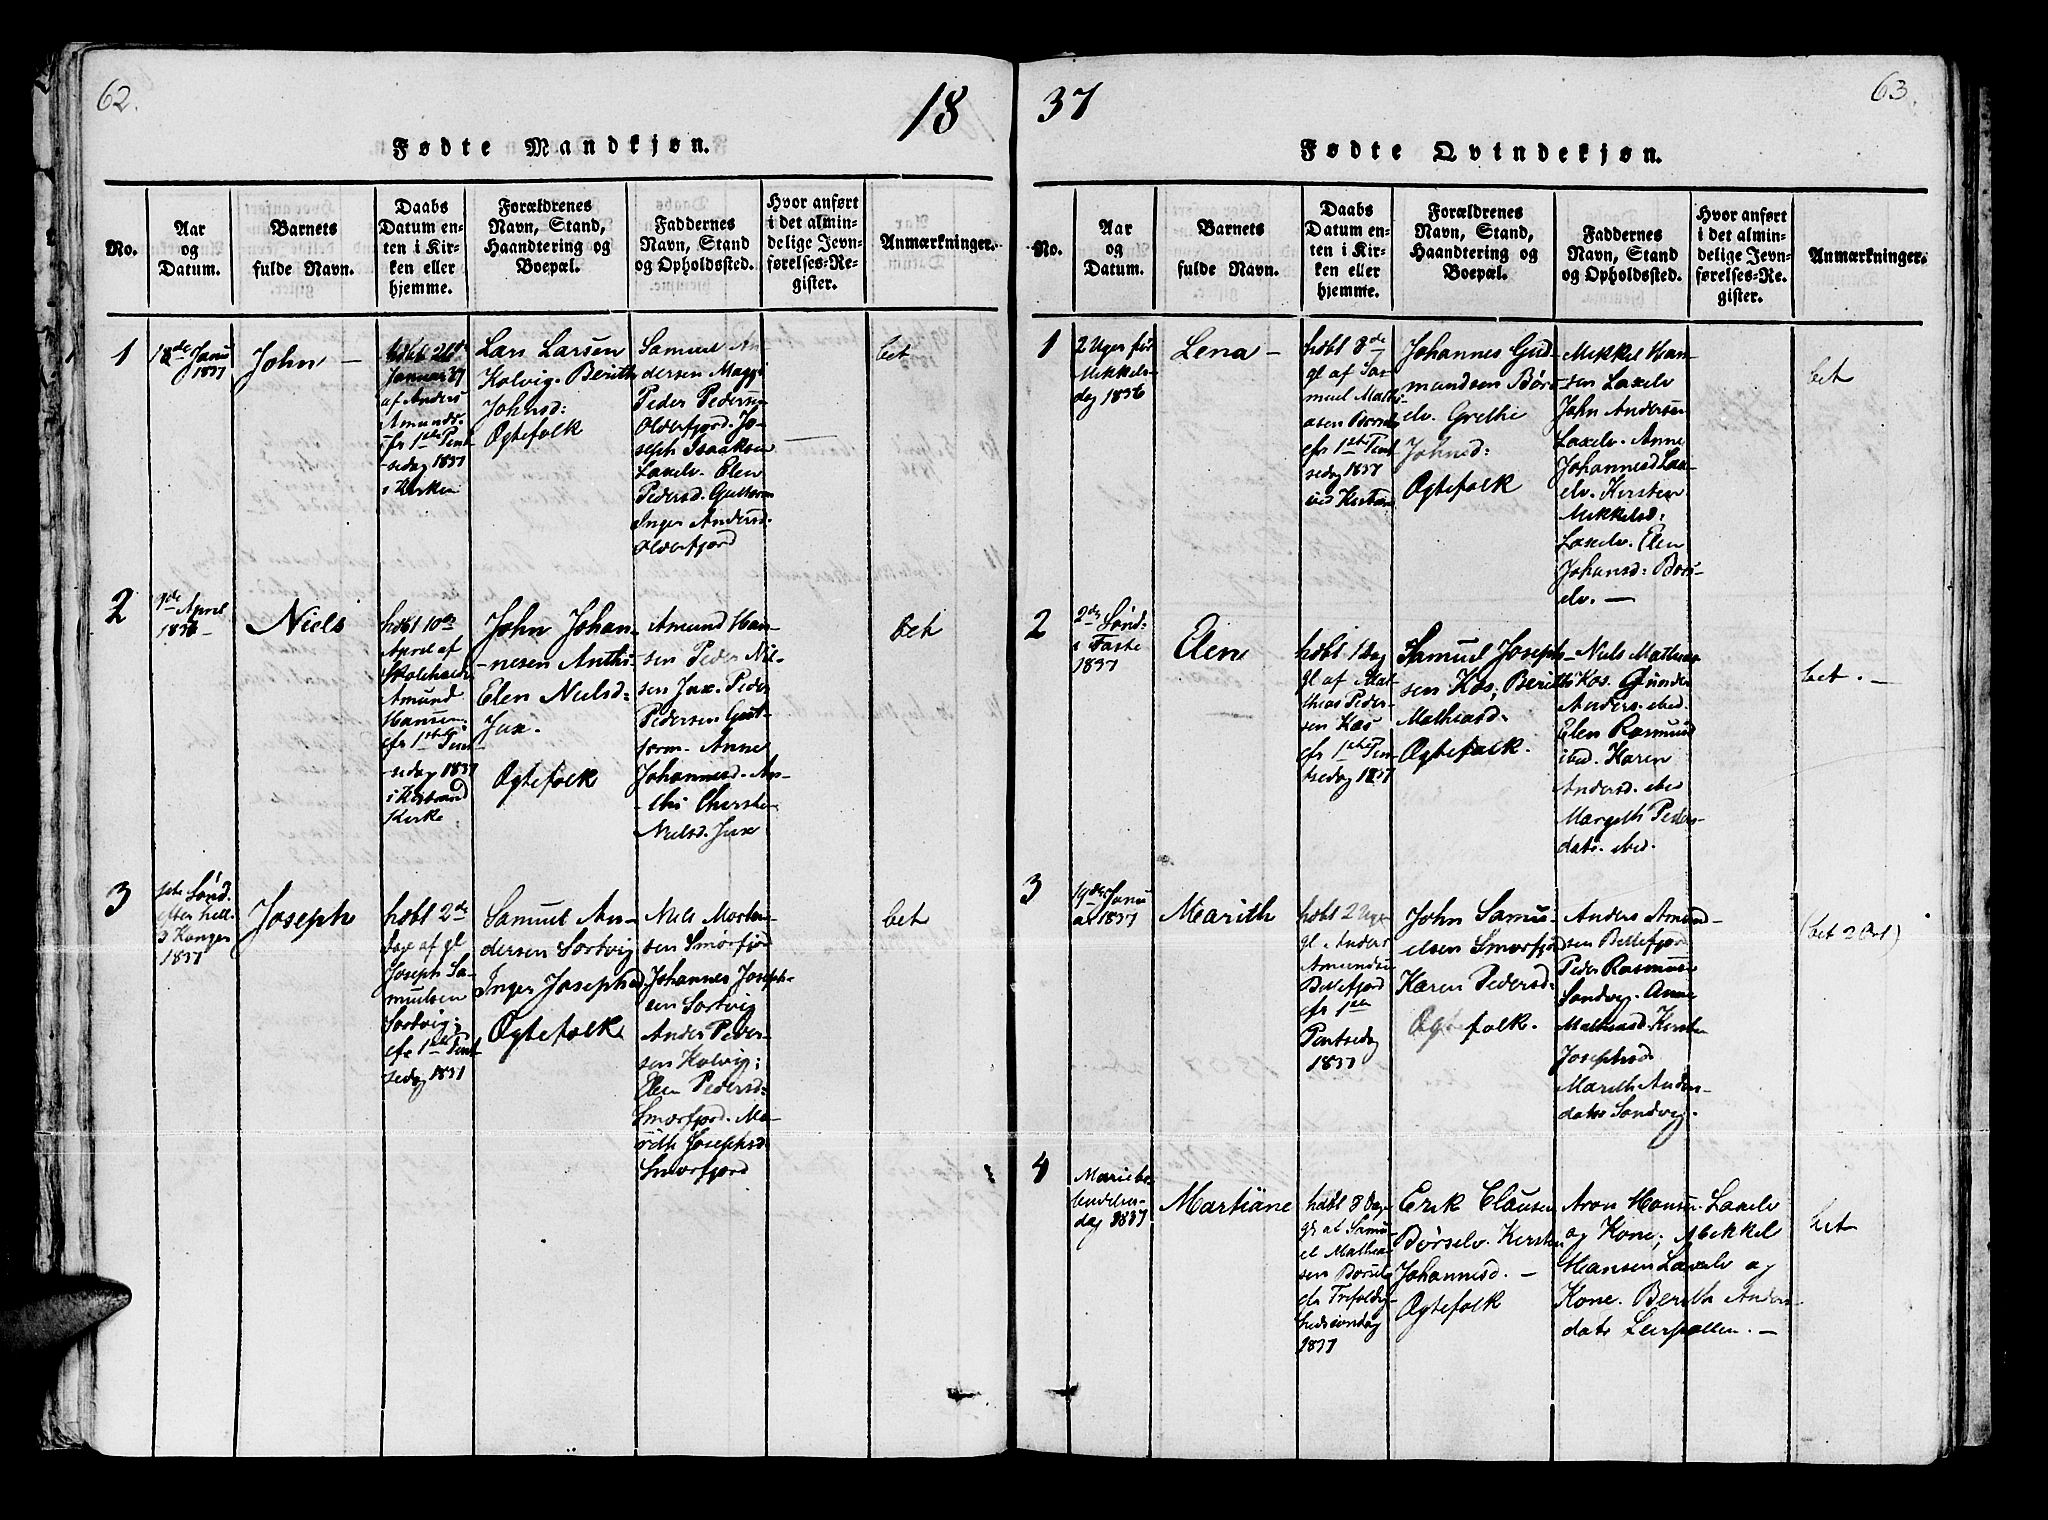 62.
18
Fødte Mandkjøn.
No.
Aar
og
Datum.
Barnets
fulde Navn.
Daabs
Datum en-
ten i Kir-
ken eller
hjemme.
Forældrenes
Navn, Stand,
Haandtering og
Boepæl.
Faddernes
Navn, Stand
og Opholdssted.
Hvor anført
i det almin-
delige Jevn-
førelses-Re-
gister.
Anmærkninger.
1
Janu
1837
John
Januar 37
af Anders
Amunds.
efr 1ste Pent
sedag 1837
i Kirken
Lars Larsen
Kolvig. Berith
Johnsd:
Ægtefolk
Samuel An
dersen
Peder Pedersen
Olderfjord. Jo-
seph Isaaksen
Laxelv. Elen
Pedersd.
Inger Andersd.
Olderfjord
bet
2
April
1836
Niels
hbt 10de
April af
Amund
Hansen
efr 1ste Pent
sedag 1837
i Kistrand
Kirke
John Johan-
nesen
Elen Nielsd:
Jax.
Ægtefolk
Amund Han-
sen Peder Nil-
sen Jax. Peder
Pedersen
Anne
Johannesd.
Nielsd. Jax
bet
3
1ste Sønd.
efter hell.
3 Konger
1837
Joseph
hbt 2de
Dage af gl
Joseph Sa-
muelsen
Sortvig;
efr 1ste Pent
sedag 1837
Samuel An-
dersen Sortvig
Inger Josephsd
Ægtefolk
Niels Morten-
sen Smørfjord
Johannes Joseph-
sen Sortvig
Anders Peder-
sen Kolvig;
Elen Pedersd:
Smørfjord. Ma-
rith Josephsd
Smørfjord
bet
37
63.
Fødte Qvindekjøn.
No.
Aar
og
Datum.
Barnets
fulde Navn.
Daabs
Datum en-
ten i Kir-
ken eller
hjemme.
Forældrenes
Navn, Stand,
Haandtering og
Boepæl.
Faddernes
Navn, Stand
og Opholdssted.
Hvor anført
i det almin-
delige Jevn-
førelses-Re-
gister.
Anmærkninger.
1
2 Uger før
Mikkels-
dag 1836
Lena
hbt 8de
gl af Sa-
muel Mathi-
asen
efr 1ste Pent
sedag 1837
Johannes Gud
mundsen Børs
elv. Grethe
Johnsd:
Ægtefolk
Mikkel Han-
sen Laxelv
John Andersen
Laxelv. Anne
Johannesd Lax-
elv. Kersten
Mikkelsd:
Laxelv. Elen
Johansd: Børs-
elv.
bet
2
2den Sønd:
i Faste
1837
Elen
hbt 1 Dag
gl af Mat-
thias Peder-
sen Kos
efr 1ste Pen
tsedag 1837
Samuel Joseph-
sen Kos; Berith
Mathiasd:
Ægtefolk.
Niels Mathias
Kos. Gunder
Anders. ibid.
Elen Rasmusd
ibid. Karen
Andersd. ibid
Margeth Peders
datr. ibid.
bet.
3
19de Janu
ar 1837
Marith
hbt 2 Uger
gl. Anders
Amundsen
Billefjord
efr 1ste
Pentsedag
1837
John Samu-
elsen Smørfjord
Karen Pedersd:
Ægtefolk.
Anders Amund-
sen Billefjord
Peder Rasmusen
Sandvig. Anne
Mathiasd. Kersten
Josephsd.
Marith Anders-
datr Sandvig.
(bet 2 Ort)
4
Mariebe-
budelses-
dag 1837
Martiane
hbt 8 Dage
gl af Samu-
el Mathia-
sen Børselv
efr Trefoldig-
hedssøndag
1837
Erik Clausen
Børselv. Kersten
Johannesd.
Ægtefolk
Aron Hansen Laxelv
og Kone; Mikkel
Hansen Laxelv og
Kone. Berith Anders-
datr Leirpollen.
bet